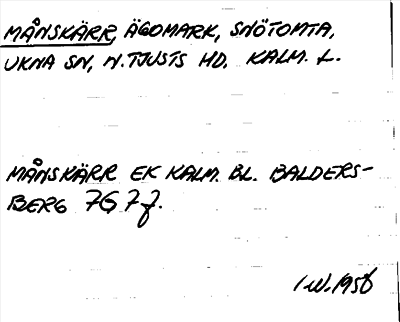 MÅNSKÄRR, ÄGOMARK, SNÖTOMTA,
UKNA SN, N. TJUSTS HD. KALM. L.
MÅNSKÄRR EK KALM. BL. BALDERS-
BERG 7G7f.
I.W. 1956